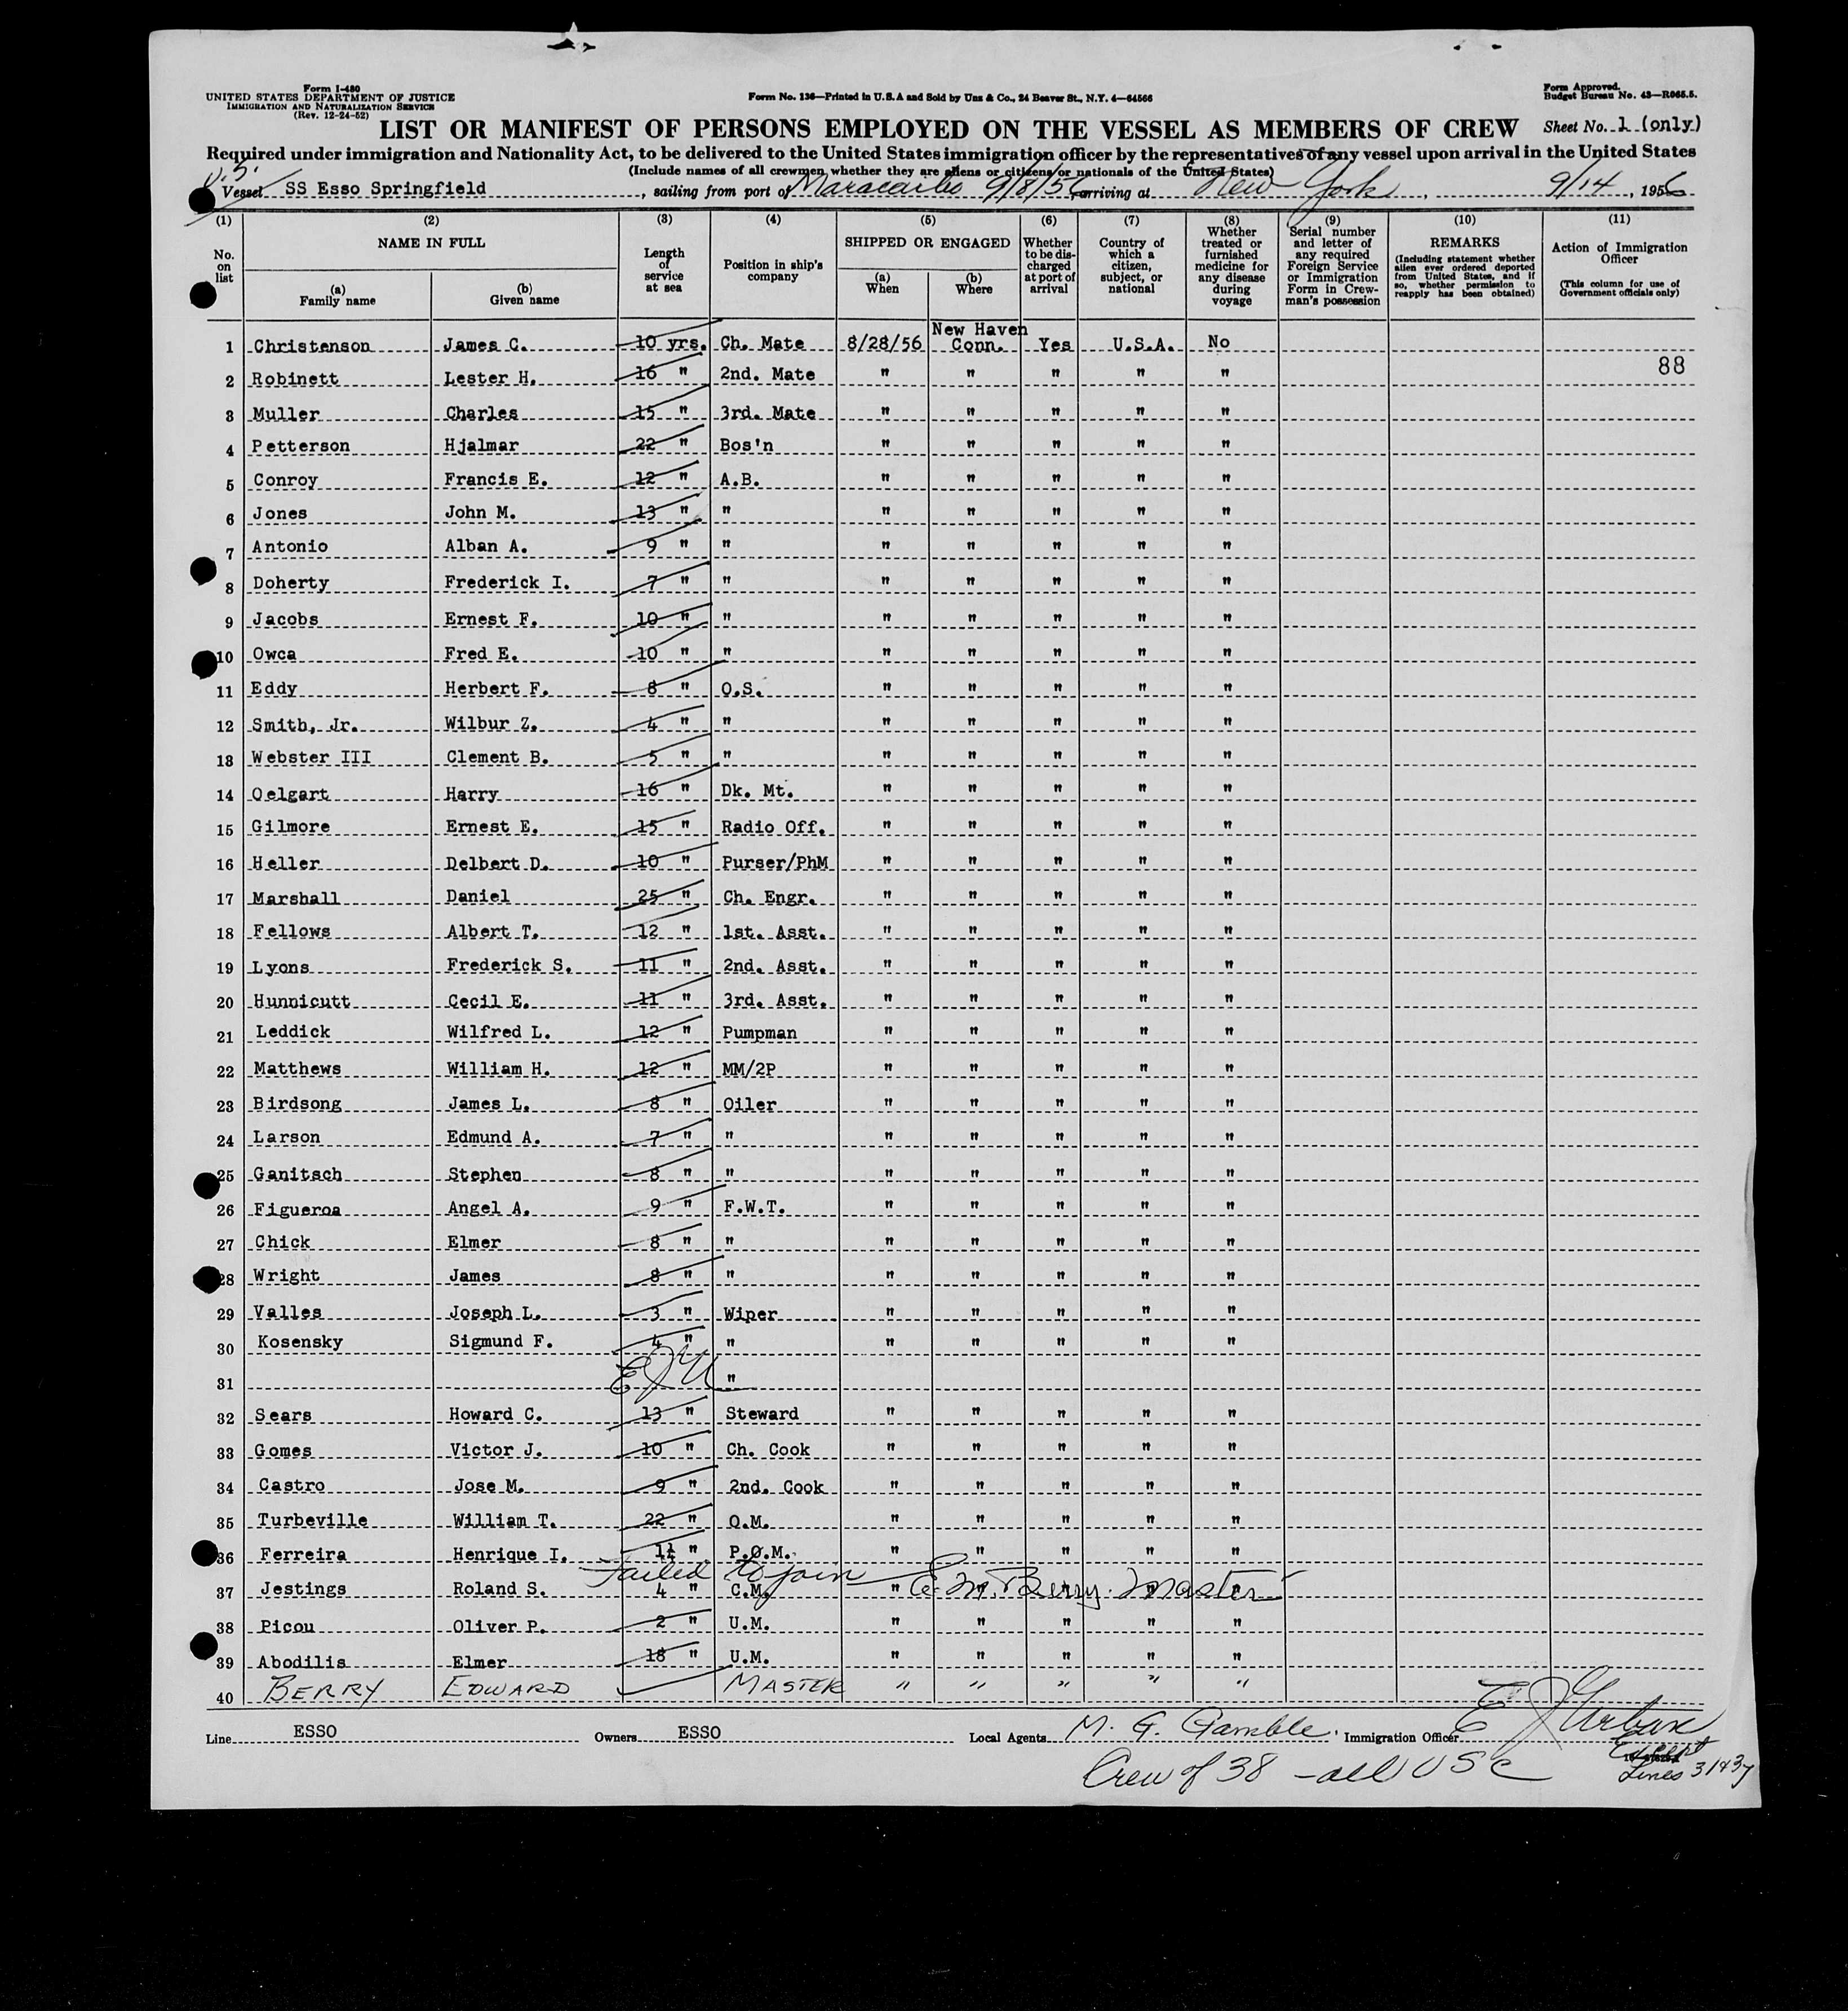 Form I-480
UNITED STATES DEPARTMENT OF JUSTICE
IMMIGRATION AND NATURALIZATION SERVICE
(Rev. 12-24-52)
Form No. 136—Printed in U.S.A and Sold by Unz & Co., 24 Beaver St., N.Y. 4—64566
Form Approved.
Budget Bureau No. 43—R065.5.
LIST OR MANIFEST OF PERSONS EMPLOYED ON THE VESSEL AS MEMBERS OF CREW Sheet No. 1 (only)
Required under immigration and Nationality Act, to be delivered to the United States immigration officer by the representatives of any vessel upon arrival in the United States
(Include names of all crewmen whether they are aliens or citizens or nationals of the United States)
U.S.
Vessel SS Esso Springfield, sailing from port of Maracaibo 9/8/56 arriving at New York, 9/14, 1956
(1) (2) (3) (4) (5) (6) (7) (8) (9) (10) (11)
No. on list
NAME IN FULL
(a) Family name
(b) Given name
Length of service at sea
Position in ship's company
SHIPPED OR ENGAGED
(a) When
(b) Where
Whether to be discharged at port of arrival
Country of which a citizen, subject, or national
Whether treated or furnished medicine for any disease during voyage
Serial number and letter of any required Foreign Service or Immigration Form in Crewman's possession
REMARKS
(Including statement whether alien ever ordered deported from United States, and if so, whether permission to reapply has been obtained)
Action of Immigration Officer
(This column for use of Government officials only)
1 Christenson James C. 10 yrs. Ch. Mate 8/28/56 New Haven Conn. Yes U.S.A. No
2 Robinett Lester H. 16 " 2nd. Mate " " " " " 88
3 Muller Charles 15 " 3rd. Mate " " " " "
4 Petterson Hjalmar 22 " Bos'n " " " " "
5 Conroy Francis E. 12 " A.B. " " " " "
6 Jones John M. 13 " " " " " " "
7 Antonio Alban A. 9 " " " " " " "
8 Doherty Frederick I. 7 " " " " " " "
9 Jacobs Ernest F. 10 " " " " " " "
10 Owca Fred E. 10 " " " " " " "
11 Eddy Herbert F. 8 " O.S. " " " " "
12 Smith, Jr. Wilbur Z. 4 " " " " " " "
13 Webster III Clement B. 5 " " " " " " "
14 Oelgart Harry 16 " Dk. Mt. " " " " "
15 Gilmore Ernest E. 15 " Radio Off. " " " " "
16 Heller Delbert D. 10 " Purser/PhM " " " " "
17 Marshall Daniel 25 " Ch. Engr. " " " " "
18 Fellows Albert T. 12 " 1st. Asst. " " " " "
19 Lyons Frederick S. 11 " 2nd. Asst. " " " " "
20 Hunnicutt Cecil E. 11 " 3rd. Asst. " " " " "
21 Leddick Wilfred L. 12 " Pumpman " " " " "
22 Matthews William H. 12 " MM/2P " " " " "
23 Birdsong James L. 8 " Oiler " " " " "
24 Larson Edmund A. 7 " " " " " " "
25 Ganitsch Stephen 8 " " " " " " "
26 Figueroa Angel A. 9 " F.W.T. " " " " "
27 Chick Elmer 8 " " " " " " "
28 Wright James 8 " " " " " " "
29 Valles Joseph L. 3 " Wiper " " " " "
30 Kosensky Sigmund F. 4 " " " " " " "
31 EJU "
32 Sears Howard C. 13 " Steward " " " " "
33 Gomes Victor J. 10 " Ch. Cook " " " " "
34 Castro Jose M. 9 " 2nd. Cook " " " " "
35 Turbeville William T. 22 " O.M. " " " " "
36 Ferreira Henrique I. 11 " P.O.M. " " " " "
Failed to join E. M. Berry. Master
37 Jestings Roland S. 4 " C.M. " " " " "
38 Picou Oliver P. 2 " U.M. " " " " "
39 Abodilis Elmer 18 " U.M. " " " " "
40 BERRY EDWARD MASTER " " " " "
Line ESSO Owners ESSO Local Agents M. G. Gamble. Immigration Officer E J Urban
Crew of 38 - all USC
Except
Lines 31 & 37